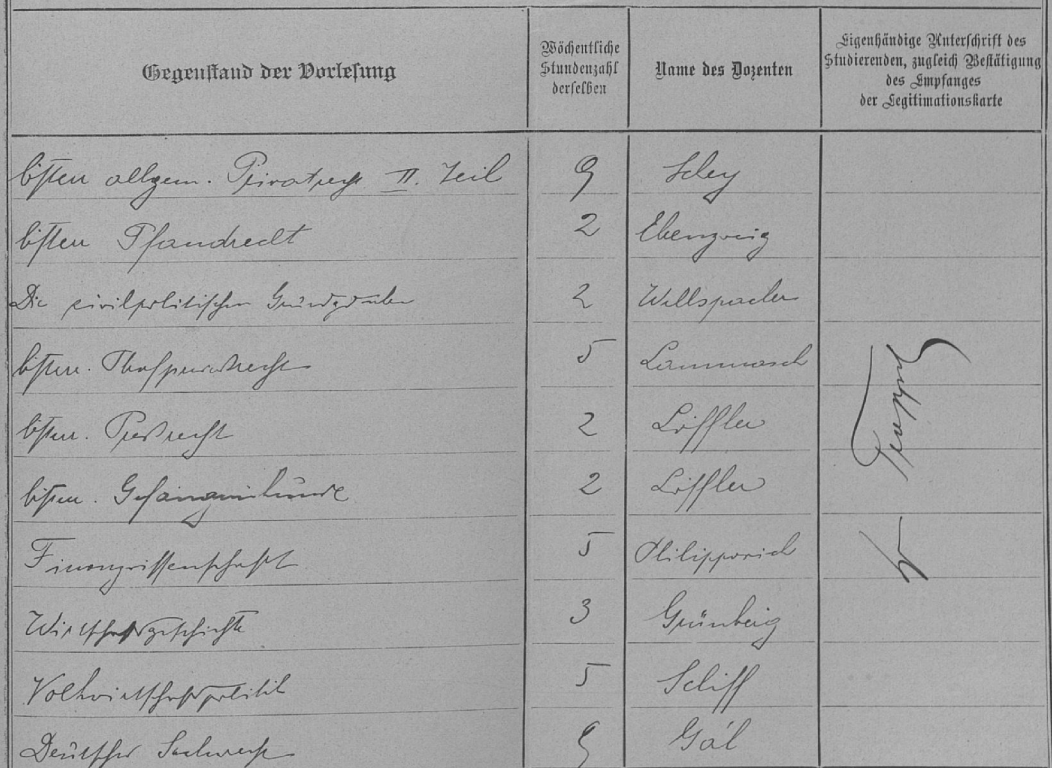 Gegenstand der Vorlesung
Wöchentliche Stundenzahl derselben
Name des Dozenten
Eigenhändige Unterschrift des Studierenden, zugleich Bestätigung des Empfanges der Legitimationskarte
Östen allgem. Privatrecht II. Teil 9 Schey
Östen Pfandrecht 2 Ebenzweig
Die civilpolitischen Grundgedanken 2 Wellspacher
Östen. Strafprozessrecht 5 Lammasch
Östen. Pressrecht 2 Löffler
Östen. Gefängniskunde 2 Löffler
Finanzwissenschaft 5 Philippovich
Wirtschaftsgeschichte 3 Grünberg
Volkwirtschaftspolitik 5 Schiff
Deutsches 5 Gál